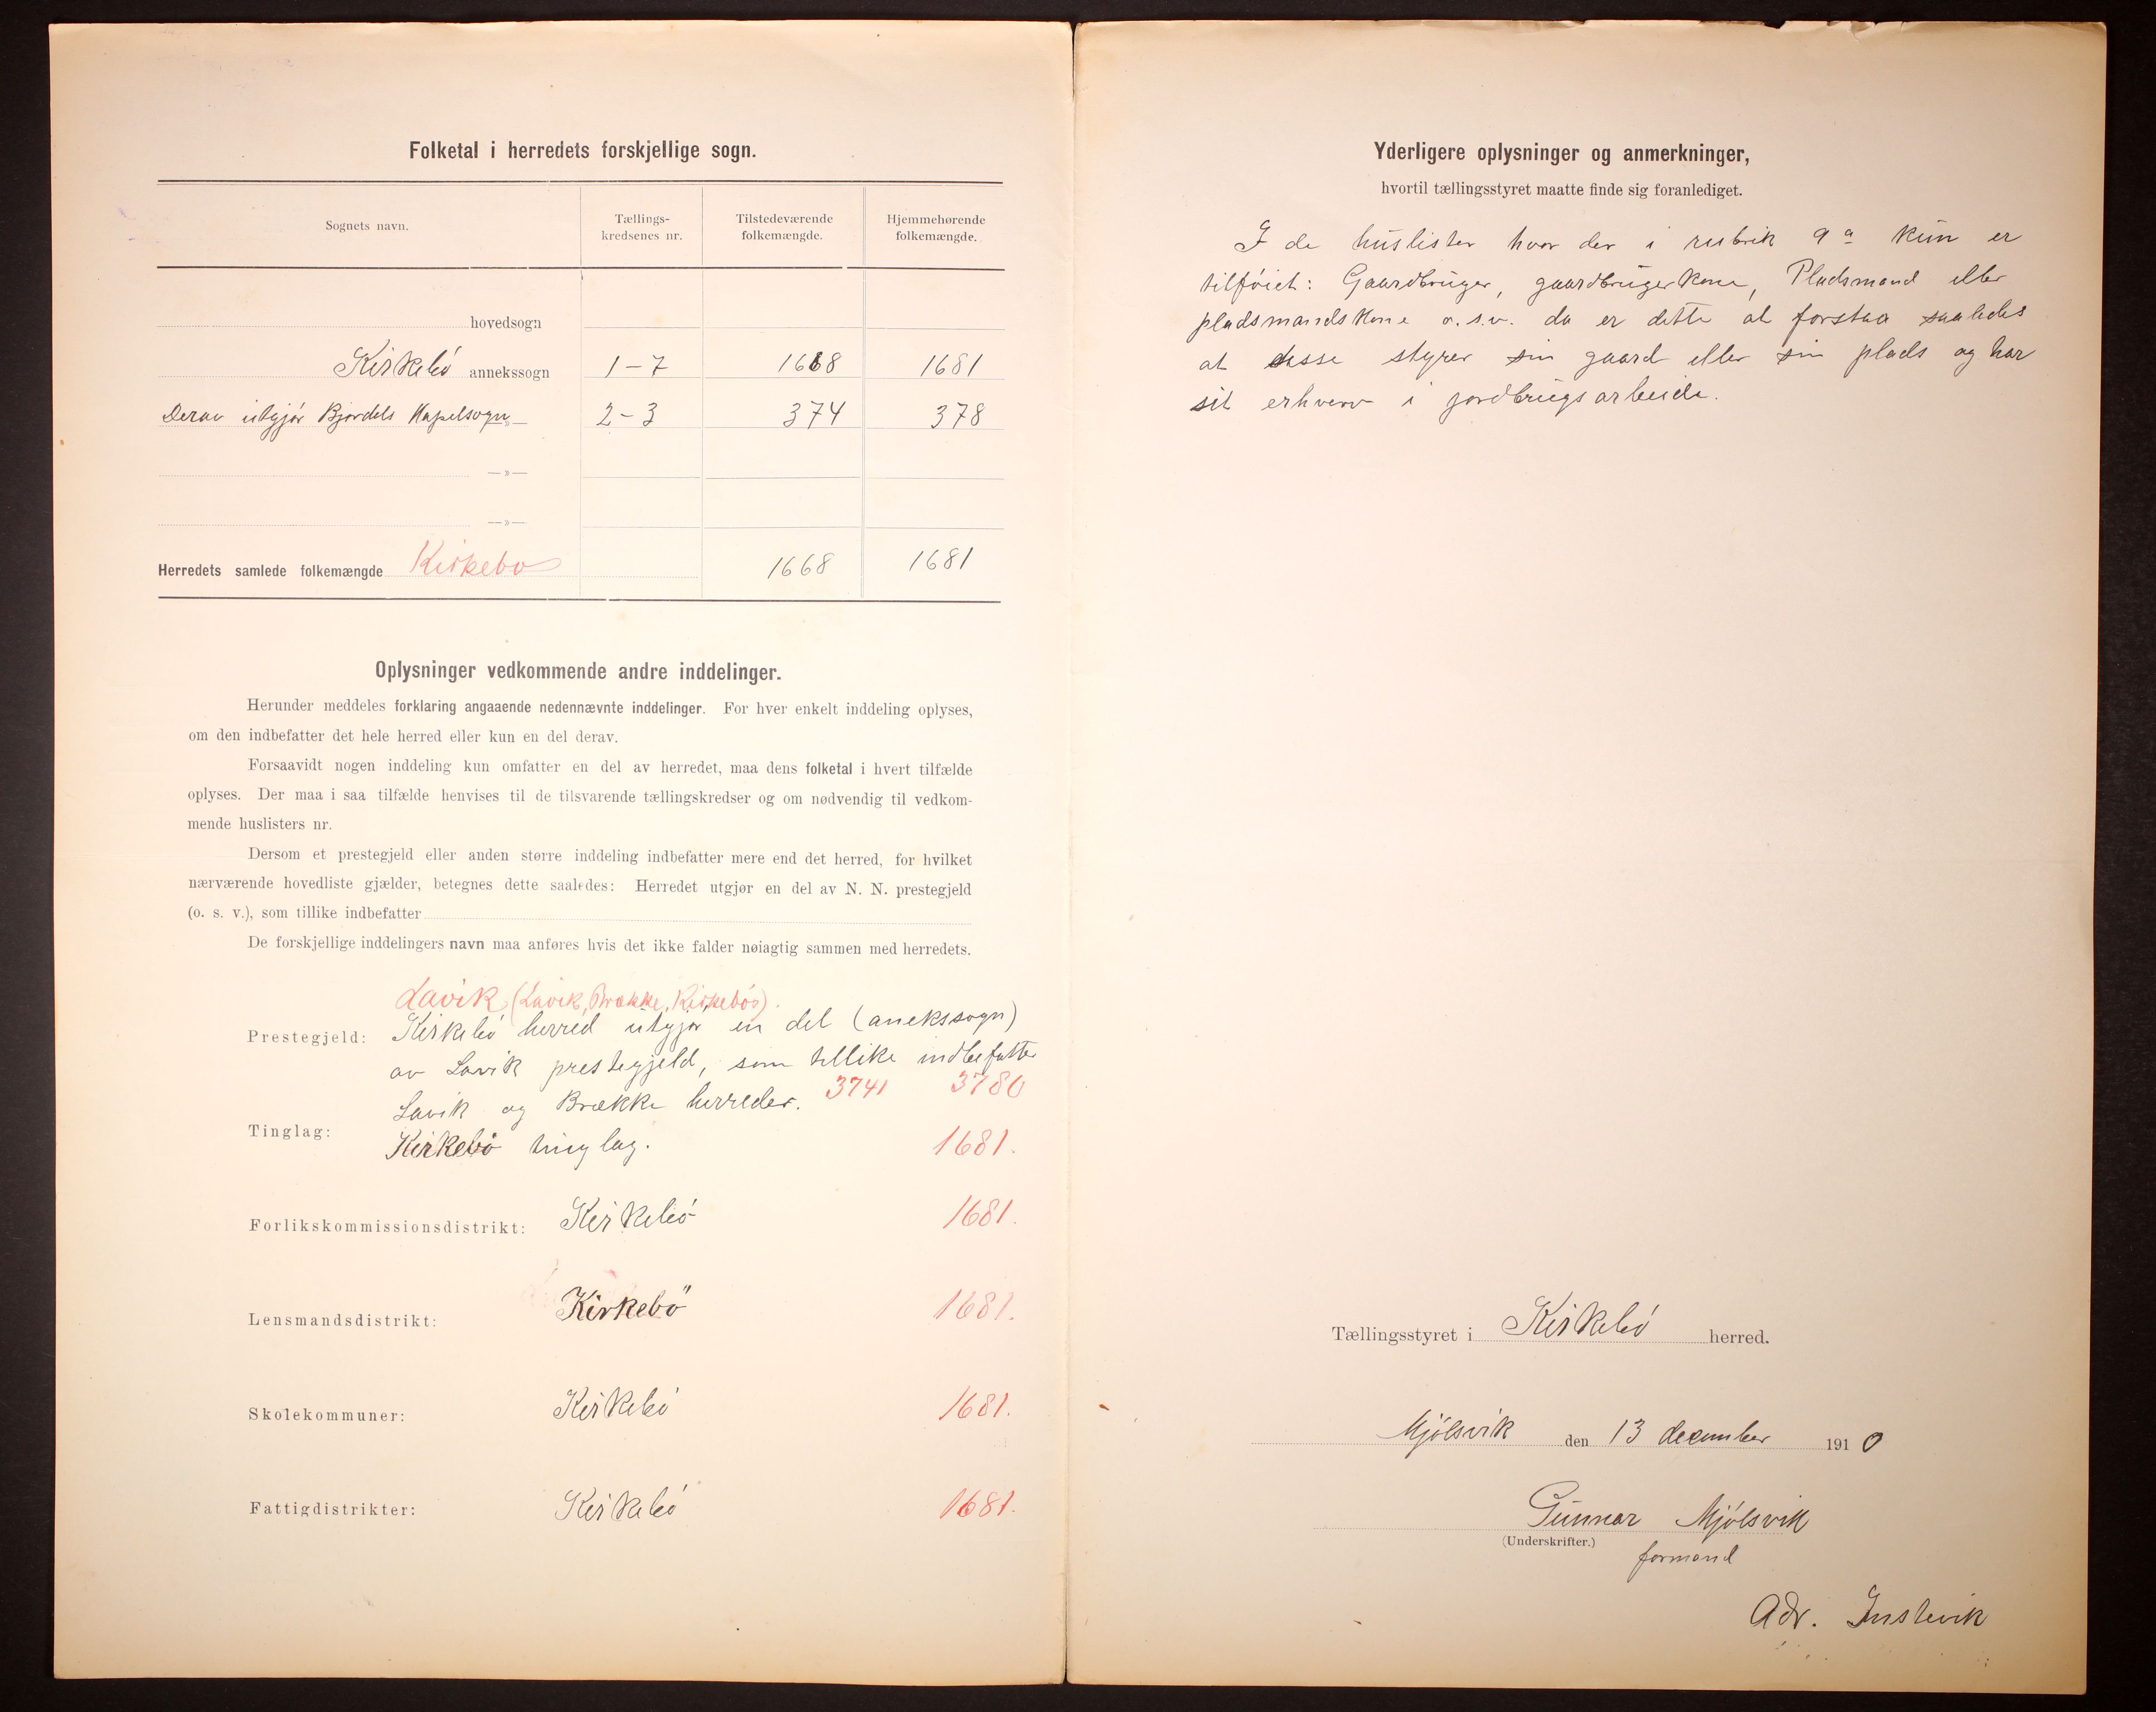 Folketal i herredets forskjellige sogn.
Sognets navn. Tællings-kredsenes nr. Tilstedeværende folkemængde. Hjemmehørende folkemængde.
hovedsogn
Kirkebö annekssogn 1-7 1668 1681
Derav utgjör Bjordals Kapelsogn —»— 2-3 374 378
—»—
—»—
Herredets samlede folkemængde Kirkebö 1668 1681
Oplysninger vedkommende andre inddelinger.
Herunder meddeles forklaring angaaende nedennævnte inddelinger. For hver enkelt inddeling oplyses,
om den indbefatter det hele herred eller kun en del derav.
Forsaavidt nogen inddeling kun omfatter en del av herredet, maa dens folketal i hvert tilfælde
oplyses. Der maa i saa tilfælde henvises til de tilsvarende tællingskredser og om nødvendig til vedkom-
mende huslisters nr.
Dersom et prestegjeld eller anden større inddeling indbefatter mere end det herred, for hvilket
nærværende hovedliste gjælder, betegnes dette saaledes: Herredet utgjør en del av N. N. prestegjeld
(o. s. v.), som tillike indbefatter
De forskjellige inddelingers navn maa anføres hvis det ikke falder nøiagtig sammen med herredets.
Lavik (Lavik, Brække, Kirkebö).
Prestegjeld: Kirkebö herred utgjör en del (anekssogn)
av Lavik prestegjeld, som tillike indbefatter
Lavik og Brække herreder. 3741 3780
Tinglag: Kirkebö tinglag. 1681.
Forlikskommissionsdistrikt: Kirkebö 1681.
Lensmandsdistrikt: Kirkebö 1681.
Skolekommuner: Kirkebö 1681.
Fattigdistrikter: Kirkebö 1681.
Yderligere oplysninger og anmerkninger,
hvortil tællingsstyret maatte finde sig foranlediget.
I de huslister hvor der i rubrik 9 a kun er
tilföiet: Gaardbruger, gaardbrugerkone, Pladsmand eller
pladsmandskone o.s.v. da er dette at forstaa saaledes
at disse styrer sin gaard eller sin plads og har
sit erhverv i jordbrugsarbeide.
Tællingsstyret i Kirkebö herred.
Mjölsvik den 13 december 1910
Gunnar Mjölsvik
(Underskrifter.)
formand
Adr. Instevik